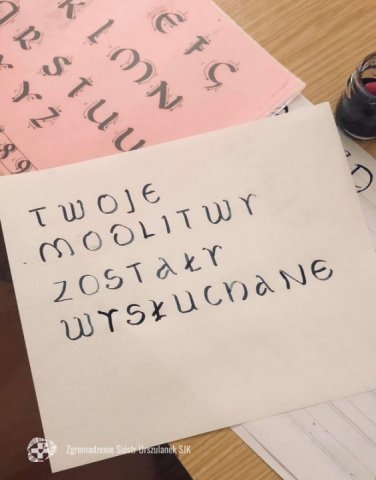 K L M N
E F G
R S T U U
X Y Z
89
TWOJE
MODLITWY
ZOSTAŁY
WYSŁUCHANE
D
Zgromadzenie Sióstr Urszulanek SJK